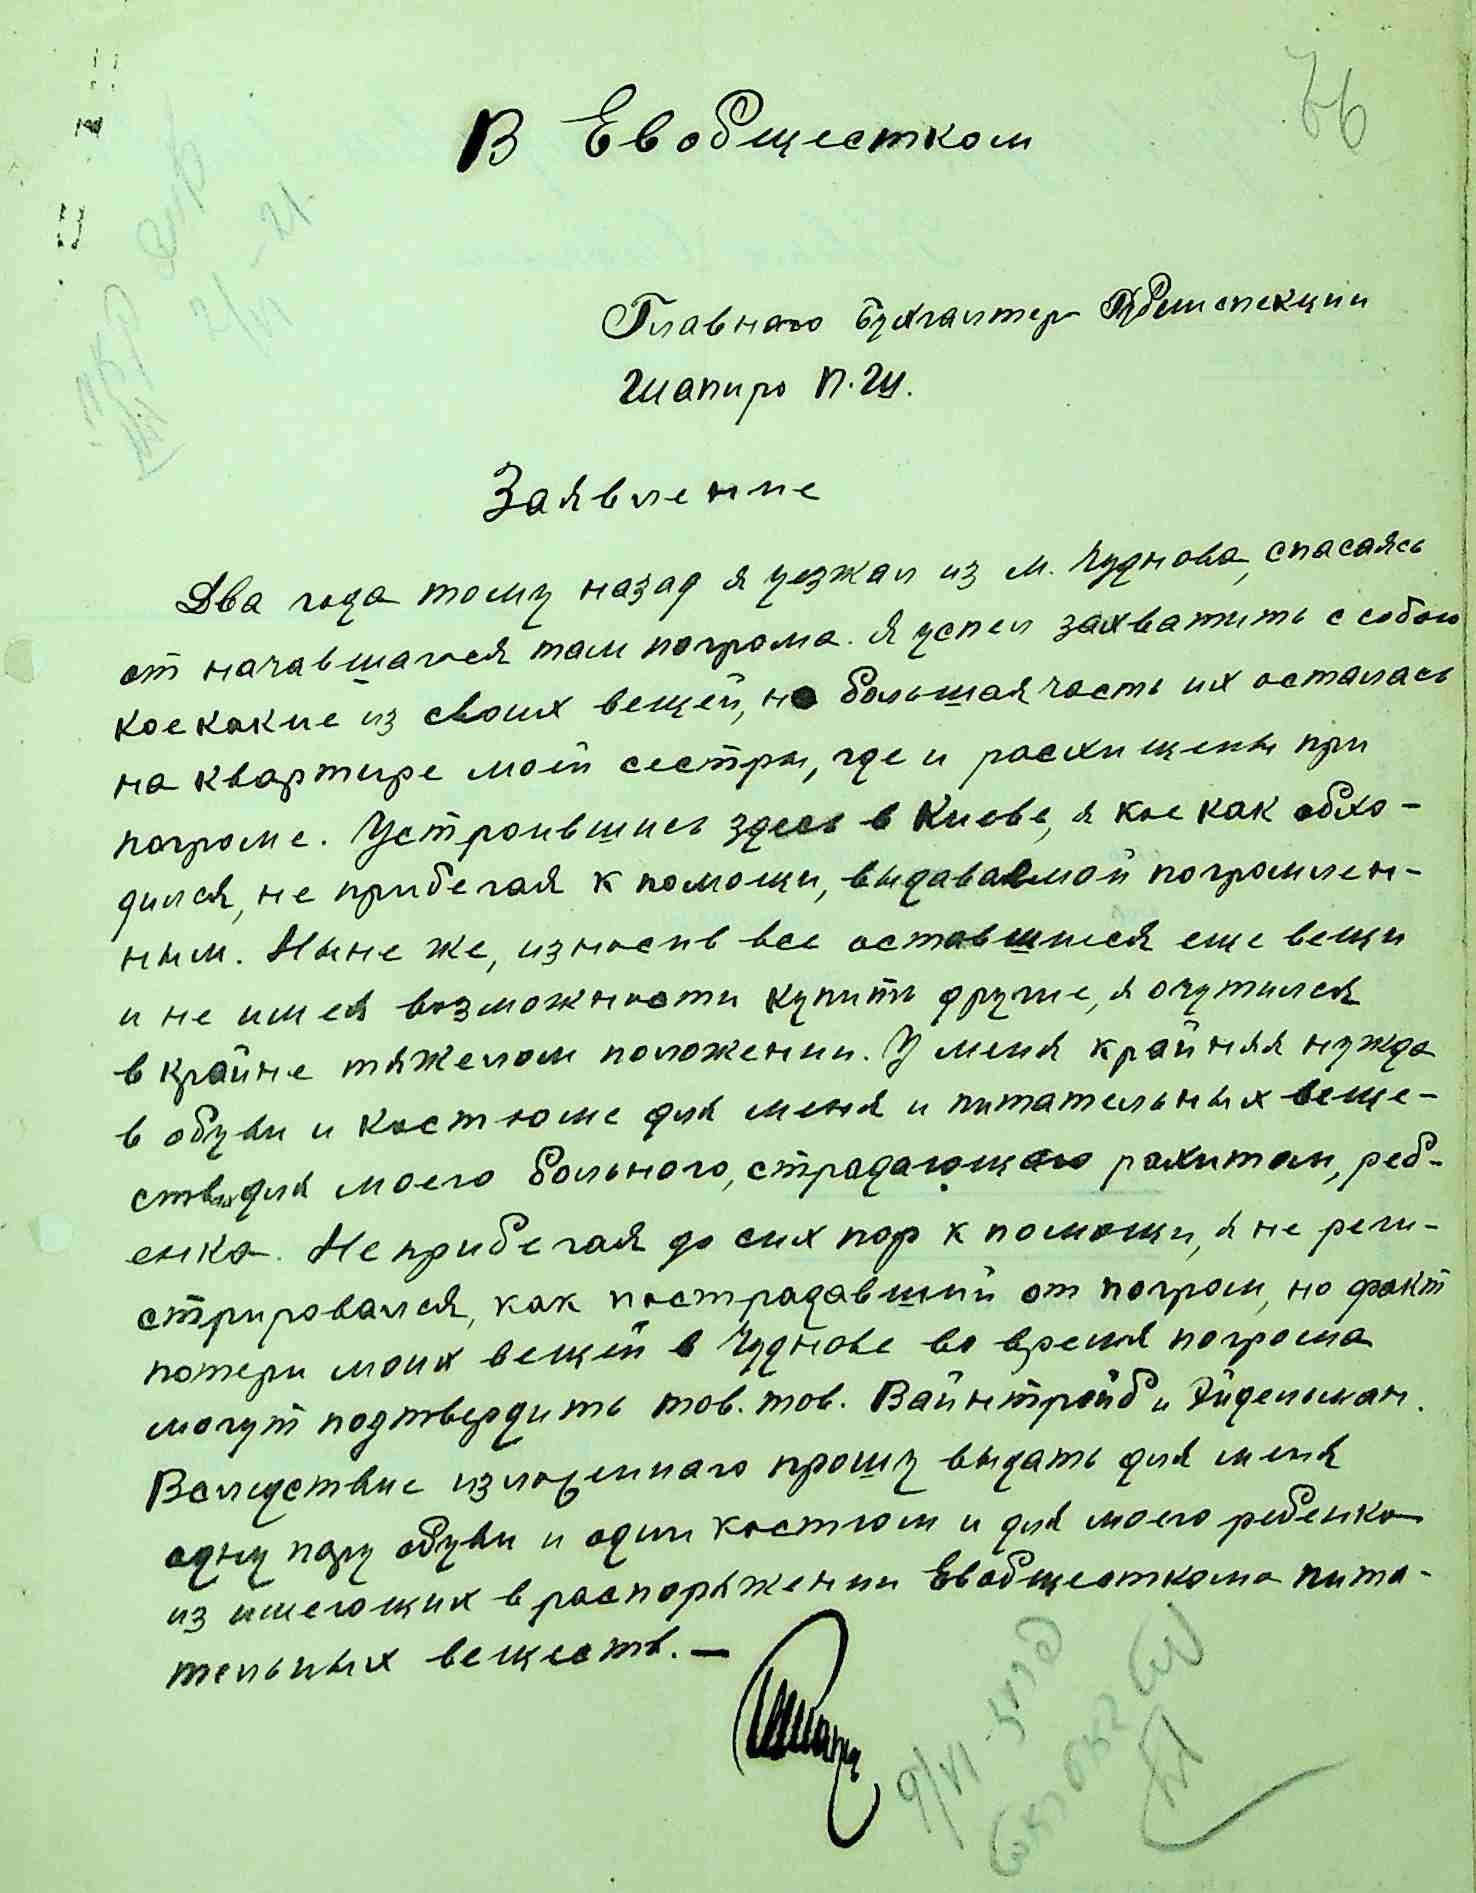 76
В Евобщестком
Главного бухгалтера Губинспекции
Шапиро П.Ш.
Заявление
Два года тому назад я уезжал из м. Чуднова, спасаясь
от начавшагося там погрома. Я успел захватить с собою
кое какие из своих вещей, но большая часть их осталась
на квартире моей сестры, где и расхищены при
погроме. Устроившись здесь в Киеве, я кое как обхо-
дился, не прибегая к помощи, выдаваемой погромлен-
ным. Ныне же, износив все оставшиеся еще вещи
и не имея возможности купить другие, я очутился
в крайне тяжелом положении. У меня крайняя нужда
в обуви и костюме для меня и питательных веще-
ствах для моего больного, страдающаго рахитом, реб-
енка. Не прибегая до сих пор к помощи, я не реги-
стрировался, как пострадавший от погром, но факт
потери моих вещей в Чуднове во время погрома
могут подтвердить тов. тов. Вайнтройб и Эйдельман.
Вследствие изложеннаго прошу выдать для меня
одну пару обуви и один костюм и для моего ребенка
из имеющих в распоряжении Евобщесткома пита-
тельных веществ. —